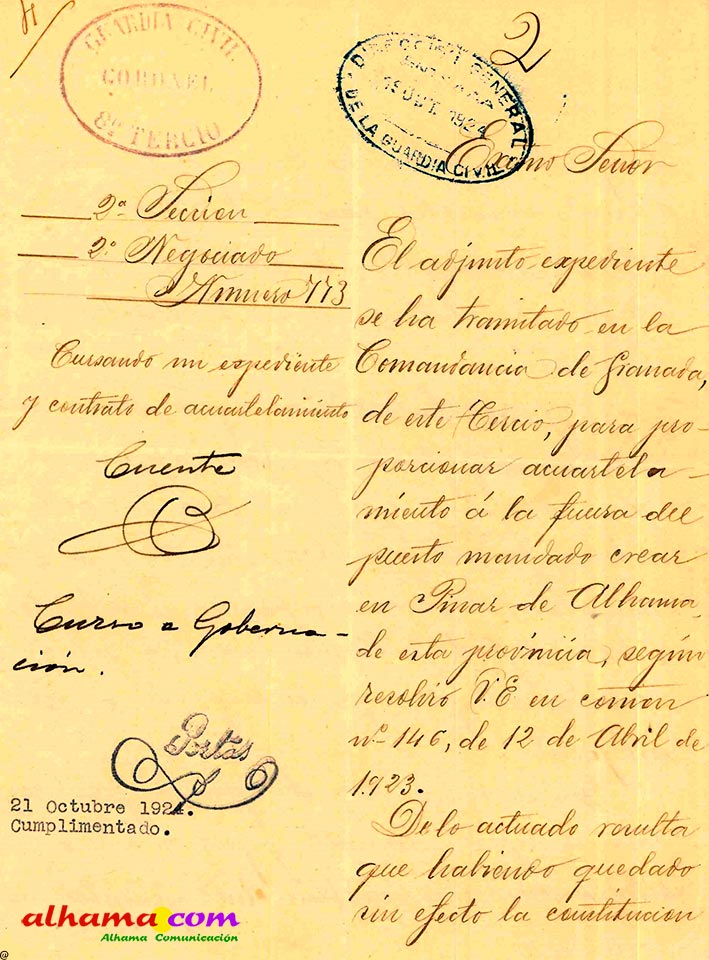 GUARDIA CIVIL
CORONEL
8º TERCIO
2
DIRECCION GENERAL
ENTRADA
OCT. 1924
DE LA GUARDIA CIVIL
Excmo Señor
2ª Seccion
2º Negociado
Numero 773
Cursando un expediente
y contrato de acuartelamiento
Cuente
Curso a Goberna-
ción.
Portas
21 Octubre 1924.
Cumplimentado.
El adjunto expediente
se ha tramitado en la
Comandancia de Granada,
de este Tercio, para pro-
porcionar acuartela-
miento á la fuerza del
puesto mandado crear
en Pinar de Alhama,
de esta provincia, según
resolvió V.E. en comon
nº 146, de 12 de Abril de
1.923.
De lo actuado resulta
que habiendo quedado
sin efecto la constitucion
alhama.com
Alhama Comunicación
@